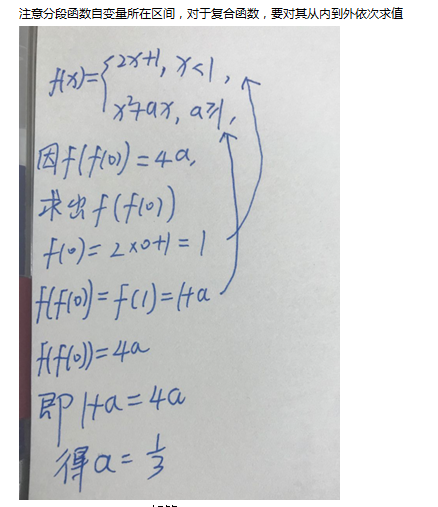 注意分段函数自变量所在区间，对于复合函数，要对其从内到外依次求值
f(x)={2x+1, x<1,
x²+ax, a≥1,
因f(f(0))=4a,
求出f(f(0))
f(0)=2×0+1=1
f(f(0))=f(1)=1+a
f(f(0))=4a
即1+a=4a
得a=1/3